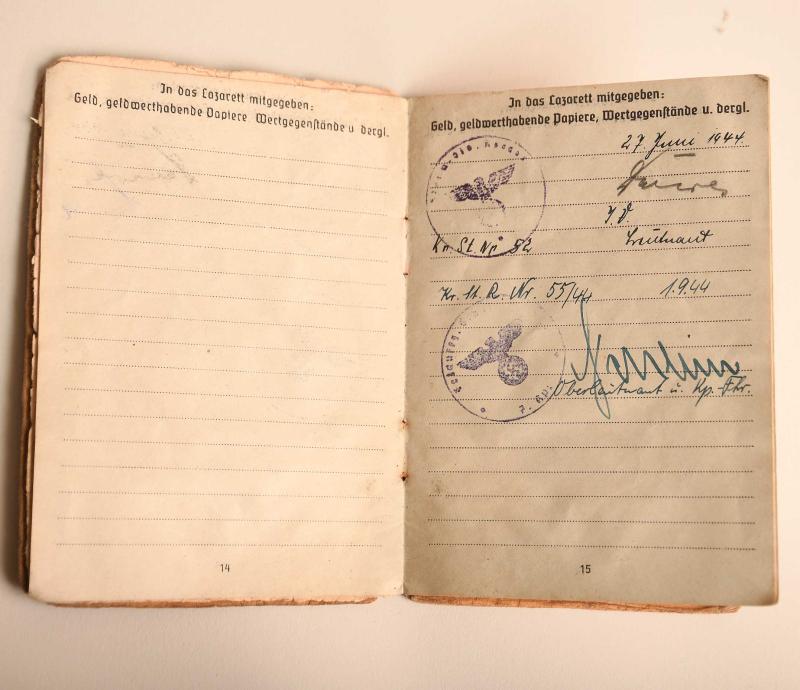 In das Lazarett mitgegeben:
Geld, geldwerthabende Papiere Wertgegenstände u dergl.
14
In das Lazarett mitgegeben:
Geld, geldwerthabende Papiere, Wertgegenstände u. dergl.
27 Juni 1944
Leutnant
Kr. St. Nr. 52
Kr. St. R. Nr. 55/44 1.9.44
Oberleutnant u. Kp. Fhr.
15